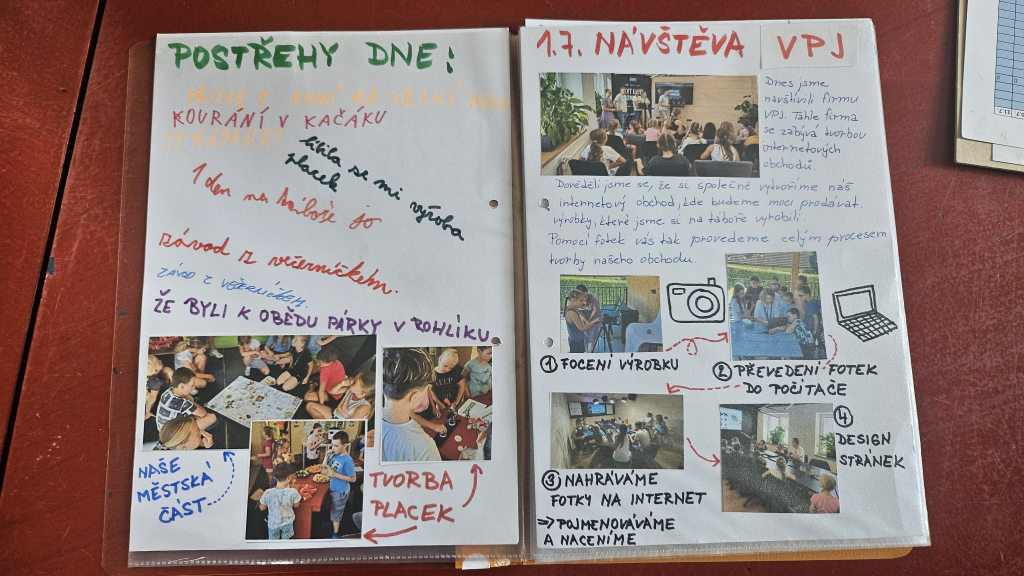 POSTŘEHY DNE:
KOURÁNÍ V KAČÁKU
líbila se mi výroba
placek
1 den na táboře jo
závod z večerníčkem.
ZÁVOD Z VEČERNÍČKEM.
ŽE BYLI K OBĚDU PÁRKY V ROHLÍKU
NAŠE
MĚSTSKÁ
ČÁST
TVORBA
PLACEK
1.7. NÁVŠTĚVA VPJ
Dnes jsme
navštívili firmu
VPJ. Tahle firma
se zabývá tvorbou
internetových
obchodů.
Dověděli jsme se, že si společně vytvoříme náš
internetový obchod, kde budeme moci prodávat
výrobky, které jsme si na táboře vyrobili.
Pomocí fotek vás tak provedeme celým procesem
tvorby našeho obchodu.
① FOCENÍ VÝROBKU
② PŘEVEDENÍ FOTEK
DO POČÍTAČE
③ NAHRÁVÁME
FOTKY NA INTERNET
⇒ POJMENOVÁVÁME
A NACENÍME
④
DESIGN
STRÁNEK